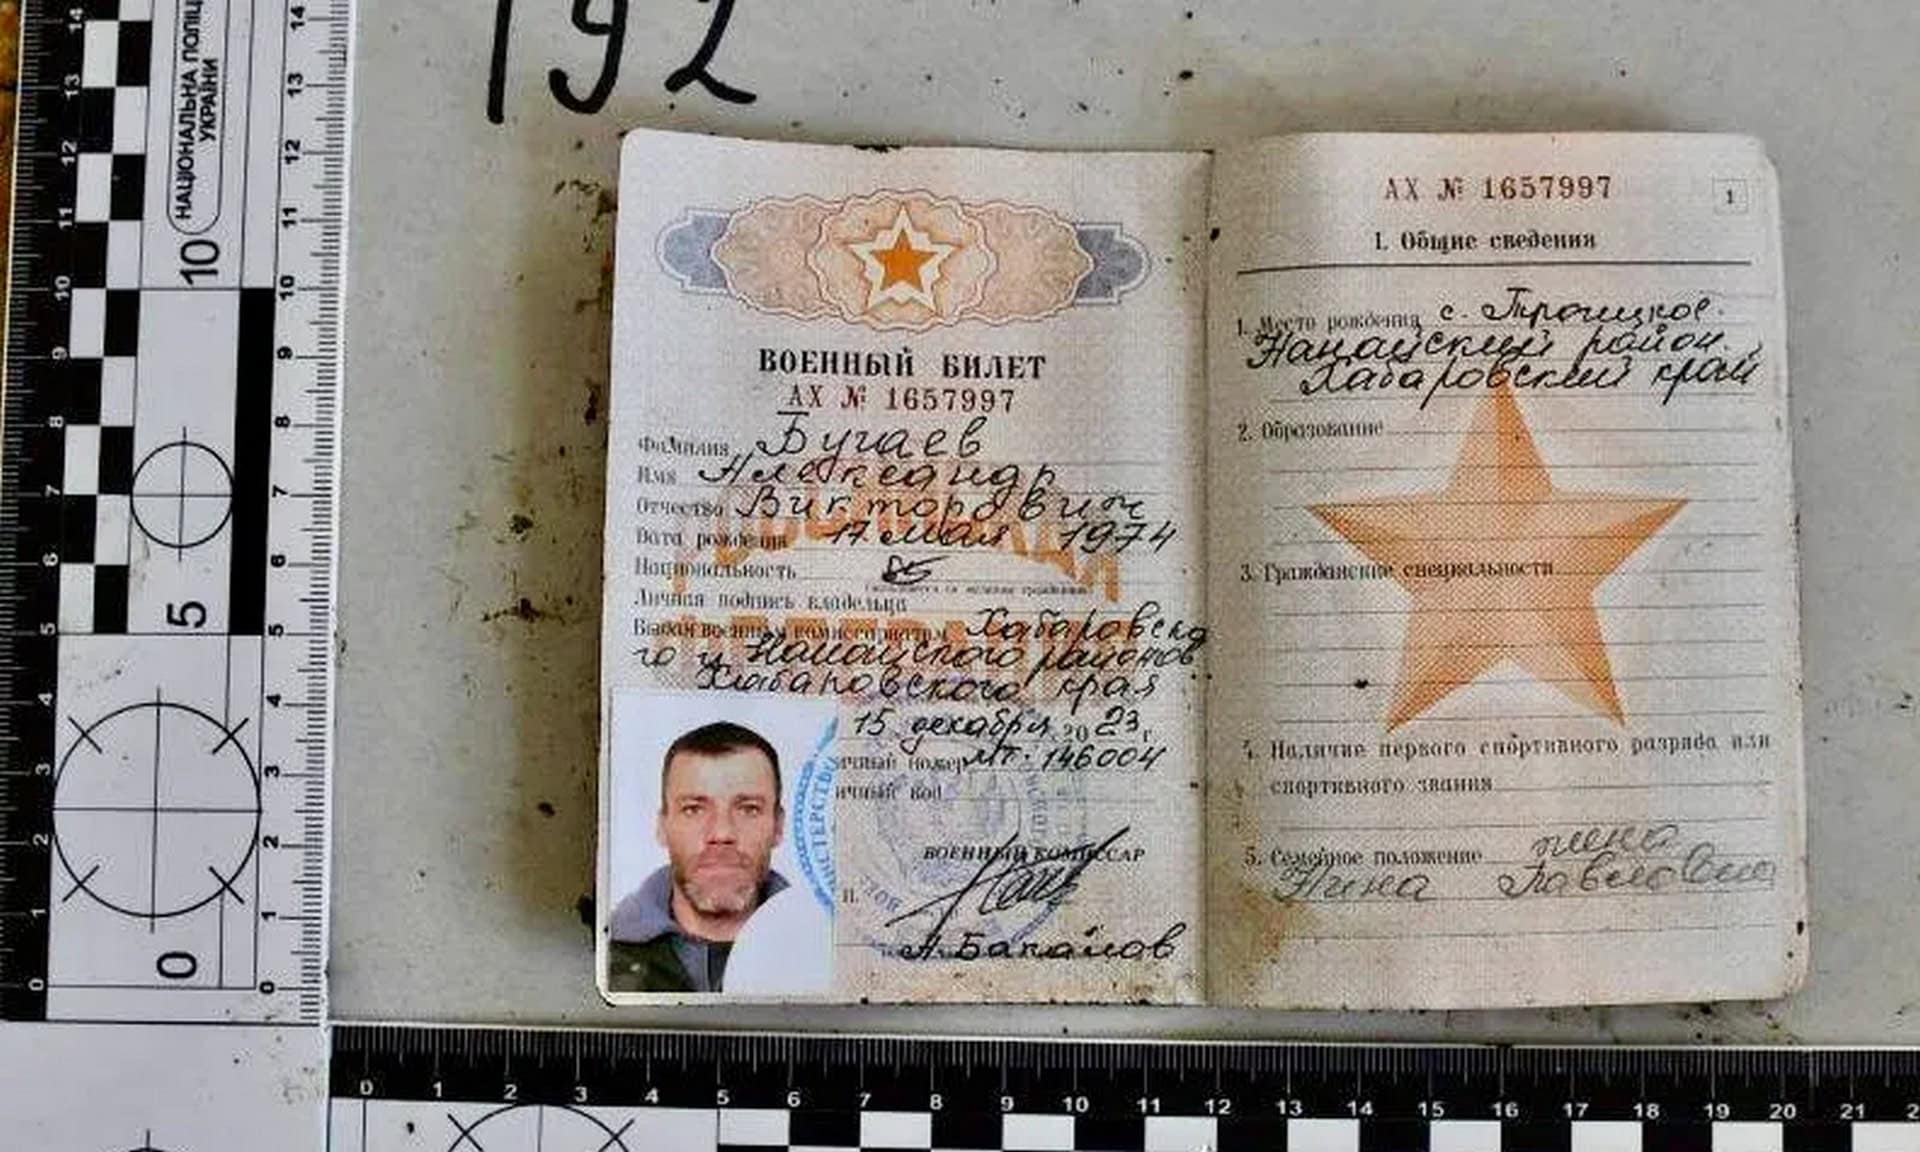 192
НАЦІОНАЛЬНА ПОЛІЦІЯ
УКРАЇНИ
14
13
12
11
10
9
8
7
6
5
4
3
2
1
0
14
13
12
11
10
9
8
7
6
5
4
3
2
1
0
10
5
0
ВОЕННЫЙ БИЛЕТ
АХ № 1657997
Фамилия Бугаев
Имя Александр
Отчество Викторович
Дата рождения 17 мая 1974
Национальность
Личная подпись владельца
Выдан военным комиссариатом Хабаровско
го и Нанайского районов
Хабаровского края
15 декабря 2023 г.
ичный номер МТ-146004
ичный код
МИНИСТЕРСТВО
ВОЕННЫЙ КОМИССАР
П.
А. Бакалов
АХ № 1657997
1
I. Общие сведения
1. Место рождения с. Троицкое.
Нанайский район.
Хабаровский край
2. Образование
3. Гражданские специальности
4. Наличие первого спортивного разряда или
спортивного звания
5. Семейное положение жена
Нина Павловна
0 1 2 3 4 5 6 7 8 9 10 11 12 13 14 15 16 17 18 19 20 21